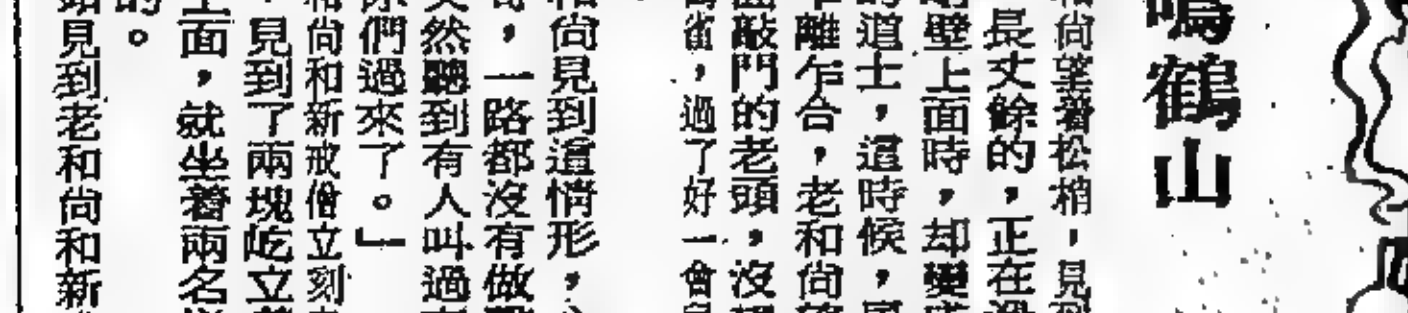 鳴鶴山
和尚望着松梢,見到
長丈餘的,正在
壁上面時,却變成
的道士,這時候,
乍離乍合,老和尚
敲門的老頭,沒
雀,過了好一會
和尚見到這情形,
,一路都沒有做聲
突然聽到有人叫過
你們過來了。」
和尚和新戒僧立刻
,見到了兩塊屹立着
上面,就坐着兩名
的。
見到老和尚和新